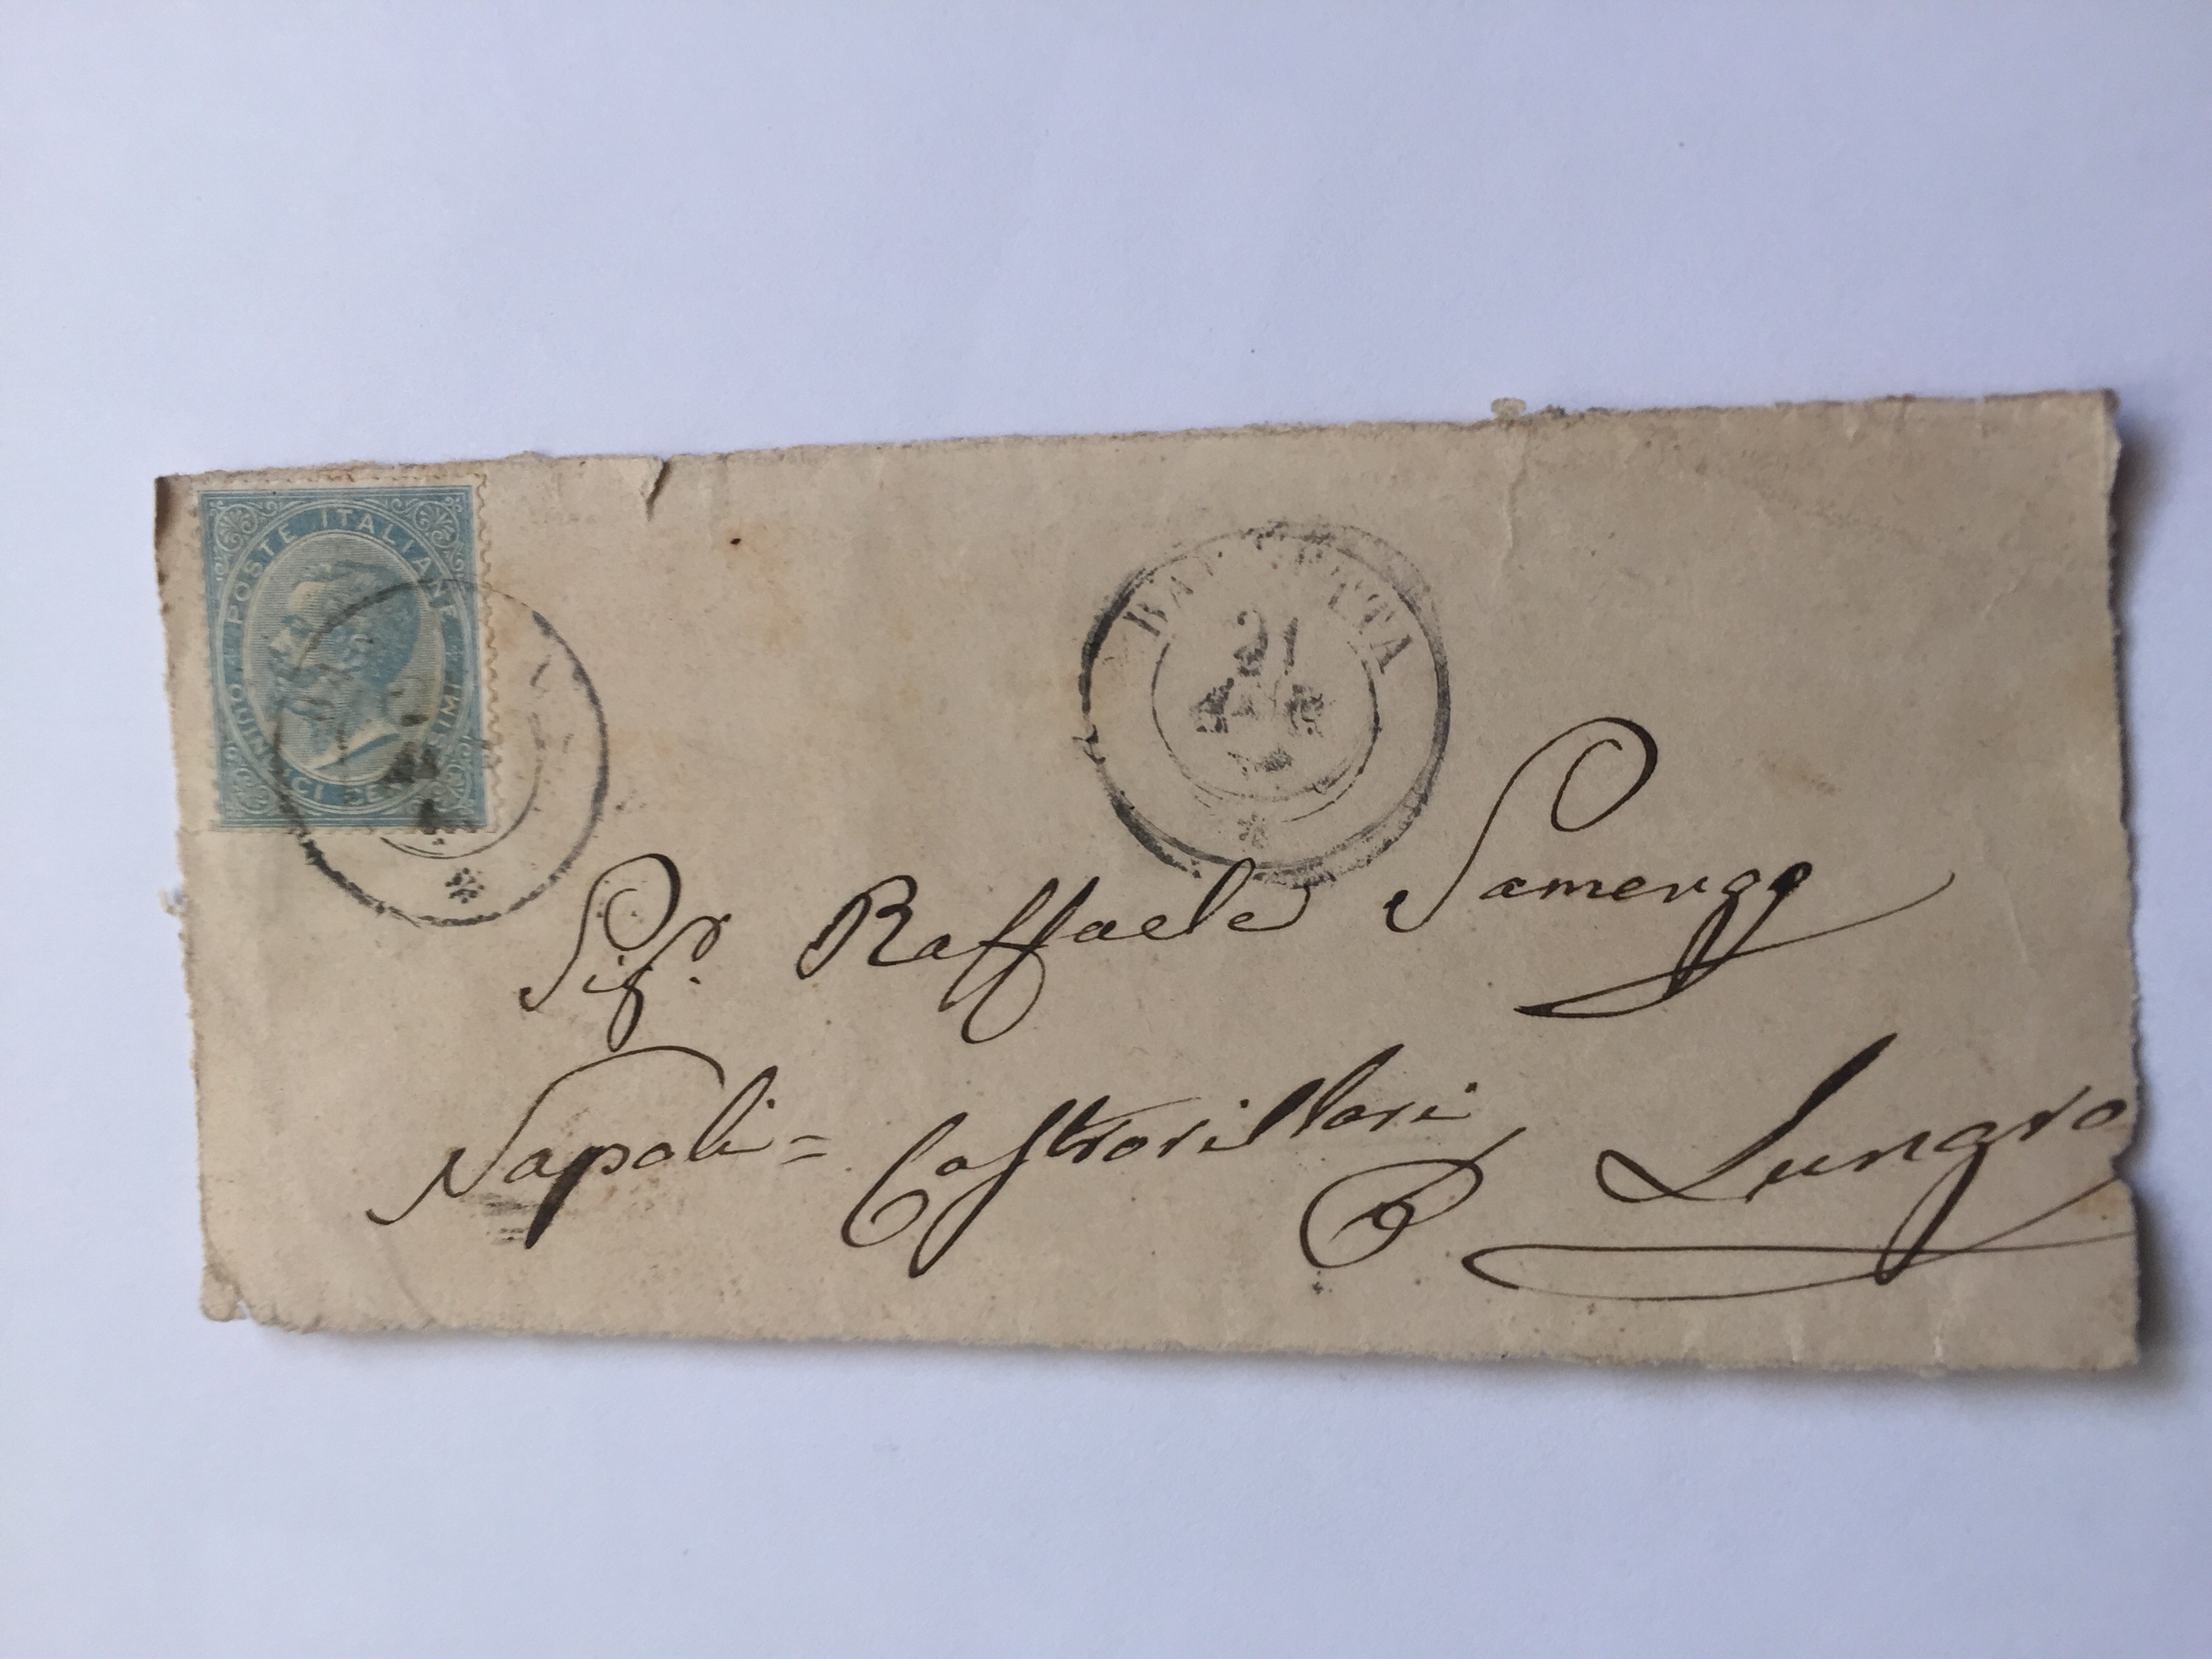 POSTE ITALIANE
QUINDICI CENTESIMI
BARLETTA
21
Sigr. Raffaele Samengo
Napoli = Castrovillari
P Lungro